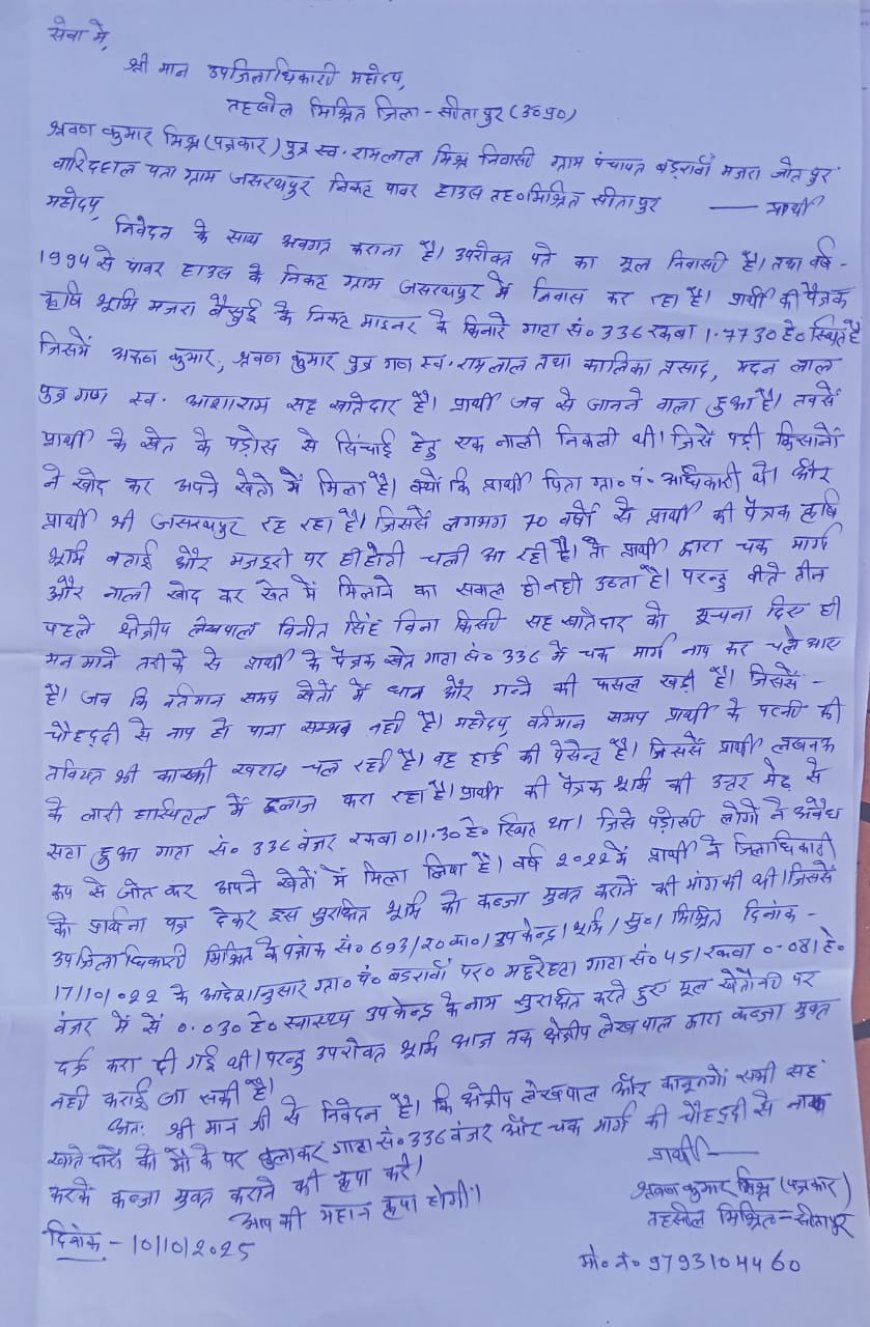 सेवा में,
श्री मान उपजिलाधिकारी महोदय,
तहसील मिश्रित जिला - सीतापुर (उ०प्र०)
श्रवण कुमार मिश्र (पत्रकार) पुत्र स्व. रामलाल मिश्र निवासी ग्राम पंचायत बड़रावां मजरा जोतपुर
हाल पता ग्राम जसरथपुर निकट पावर हाउस तह०मिश्रित सीतापुर —— प्रार्थी
महोदय,
निवेदन के साथ अवगत कराना है। उपरोक्त पते का मूल निवासी है। तथा वर्ष -
1994 से पावर हाउस के निकट ग्राम जसरथपुर में निवास कर रहा है। प्रार्थी की पैत्रक
कृषि भूमि मजरा के निकट माइनर के किनारे गाटा सं० 336 रकबा 1.7730 हे० स्थित है
जिसमें अरुण कुमार, श्रवण कुमार पुत्र गण स्व. रामलाल तथा कालिका प्रसाद, मदन लाल
पुत्र गण स्व. आशाराम सह खातेदार है। प्रार्थी जब से जानने वाला हुआ है। तबसे
प्रार्थी के खेत के पड़ोस से सिंचाई हेतु एक नाली निकली थी। जिसे पड़ोसी किसानों
ने खोद कर अपने खेतों में मिला है। क्यों कि प्रार्थी पिता ग्रा० पं० अधिकारी थे। और
प्रार्थी भी जसरथपुर रह रहा है। जिससे लगभग 70 वर्षों से प्रार्थी की पैत्रक कृषि
भूमि बटाई और मजदूरी पर ही होती चली आ रही है। तो प्रार्थी द्वारा चक मार्ग
और नाली खोद कर खेत में मिलाने का सवाल ही नही उठता है। परन्तु बीते तीन
पहले क्षेत्रीय लेखपाल विनीत सिंह बिना किसी सह खातेदार को सूचना दिए ही
मन माने तरीके से प्रार्थी के पैत्रक खेत गाटा सं० 336 में चक मार्ग नाप कर चले आए
है। जब कि वर्तमान समय खेतों में धान और गन्ने की फसल खड़ी है। जिससे -
चौहद्दी से नाप हो पाना सम्भव नही है। महोदय, वर्तमान समय प्रार्थी के पत्नी की
तबियत भी काफी खराब चल रही है। वह हार्ड की पेसेन्ट है। जिससे प्रार्थी लखनऊ
के लारी हास्पिटल में इलाज करा रहा है। प्रार्थी की पैत्रक भूमि की उत्तर मेढ़ से
सटा हुआ गाटा सं० 336 बंजर रकबा 011.30 हे० स्थित था। जिसे पड़ोसी लोगों ने अवैध
रूप से जोत कर अपने खेतों में मिला लिया है। वर्ष २०२२ में प्रार्थी ने जिलाधिकारी
को प्रार्थना पत्र देकर इस सुरक्षित भूमि को कब्जा मुक्त कराने की मांग की थी। जिससे
उपजिलाधिकारी मिश्रित के पत्रांक सं० 693/२०का०/उपकेन्द्र/भूमि/सु०/मिश्रित दिनांक -
17/10/०२२ के आदेशानुसार ग्रा० पं० बडरावां पर० महरेहटा गाटा सं० 451 रकबा 0.081 हे०
बंजर में से 0.030 हे० स्वास्थ्य उपकेन्द्र के नाम सुरक्षित करते हुए मूल खेतौनी पर
दर्ज करा दी गई थी। परन्तु उपरोक्त भूमि आज तक क्षेत्रीय लेखपाल द्वारा कब्जा मुक्त
नही कराई जा सकी है।
अतः श्री मान जी से निवेदन है। कि क्षेत्रीय लेखपाल और कानूनगो सभी सह
खाते दारों को मौके पर बुलाकर गाटा सं० 336 बंजर और चक मार्ग की चौहद्दी से नाप
करके कब्जा मुक्त कराने की कृपा करें।
आप की महान कृपा होगी।
प्रार्थी —
श्रवण कुमार मिश्र (पत्रकार)
तहसील मिश्रित = सीतापुर
दिनांक - 10/10/2०25
मो० नं० 9793104460